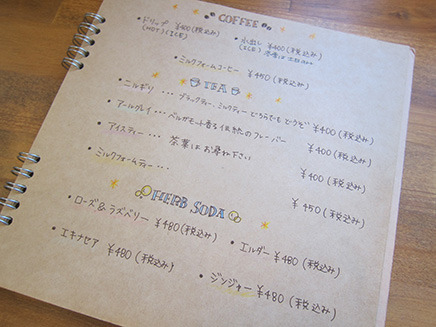 COFFEE
・ドリップ ¥400(税込み)
(HOT)(ICE)
・水出し ¥400(税込み)
(ICE)
・ミルクフォームコーヒー ¥450(税込み)
TEA
・ニルギリ … ブラックティー、ミルクティー どちらでも どうぞ ¥400(税込み)
・アールグレイ … ベルガモット香る伝統のフレーバー ¥400(税込み)
・アイスティー … 茶葉はお尋ね下さい ¥400(税込み)
・ミルクフォームティー … ¥450(税込み)
HERB SODA
・ローズ&ラズベリー ¥480(税込み)
・エルダー ¥480(税込み)
・エキナセア ¥480(税込み)
・ジンジャー ¥480(税込み)